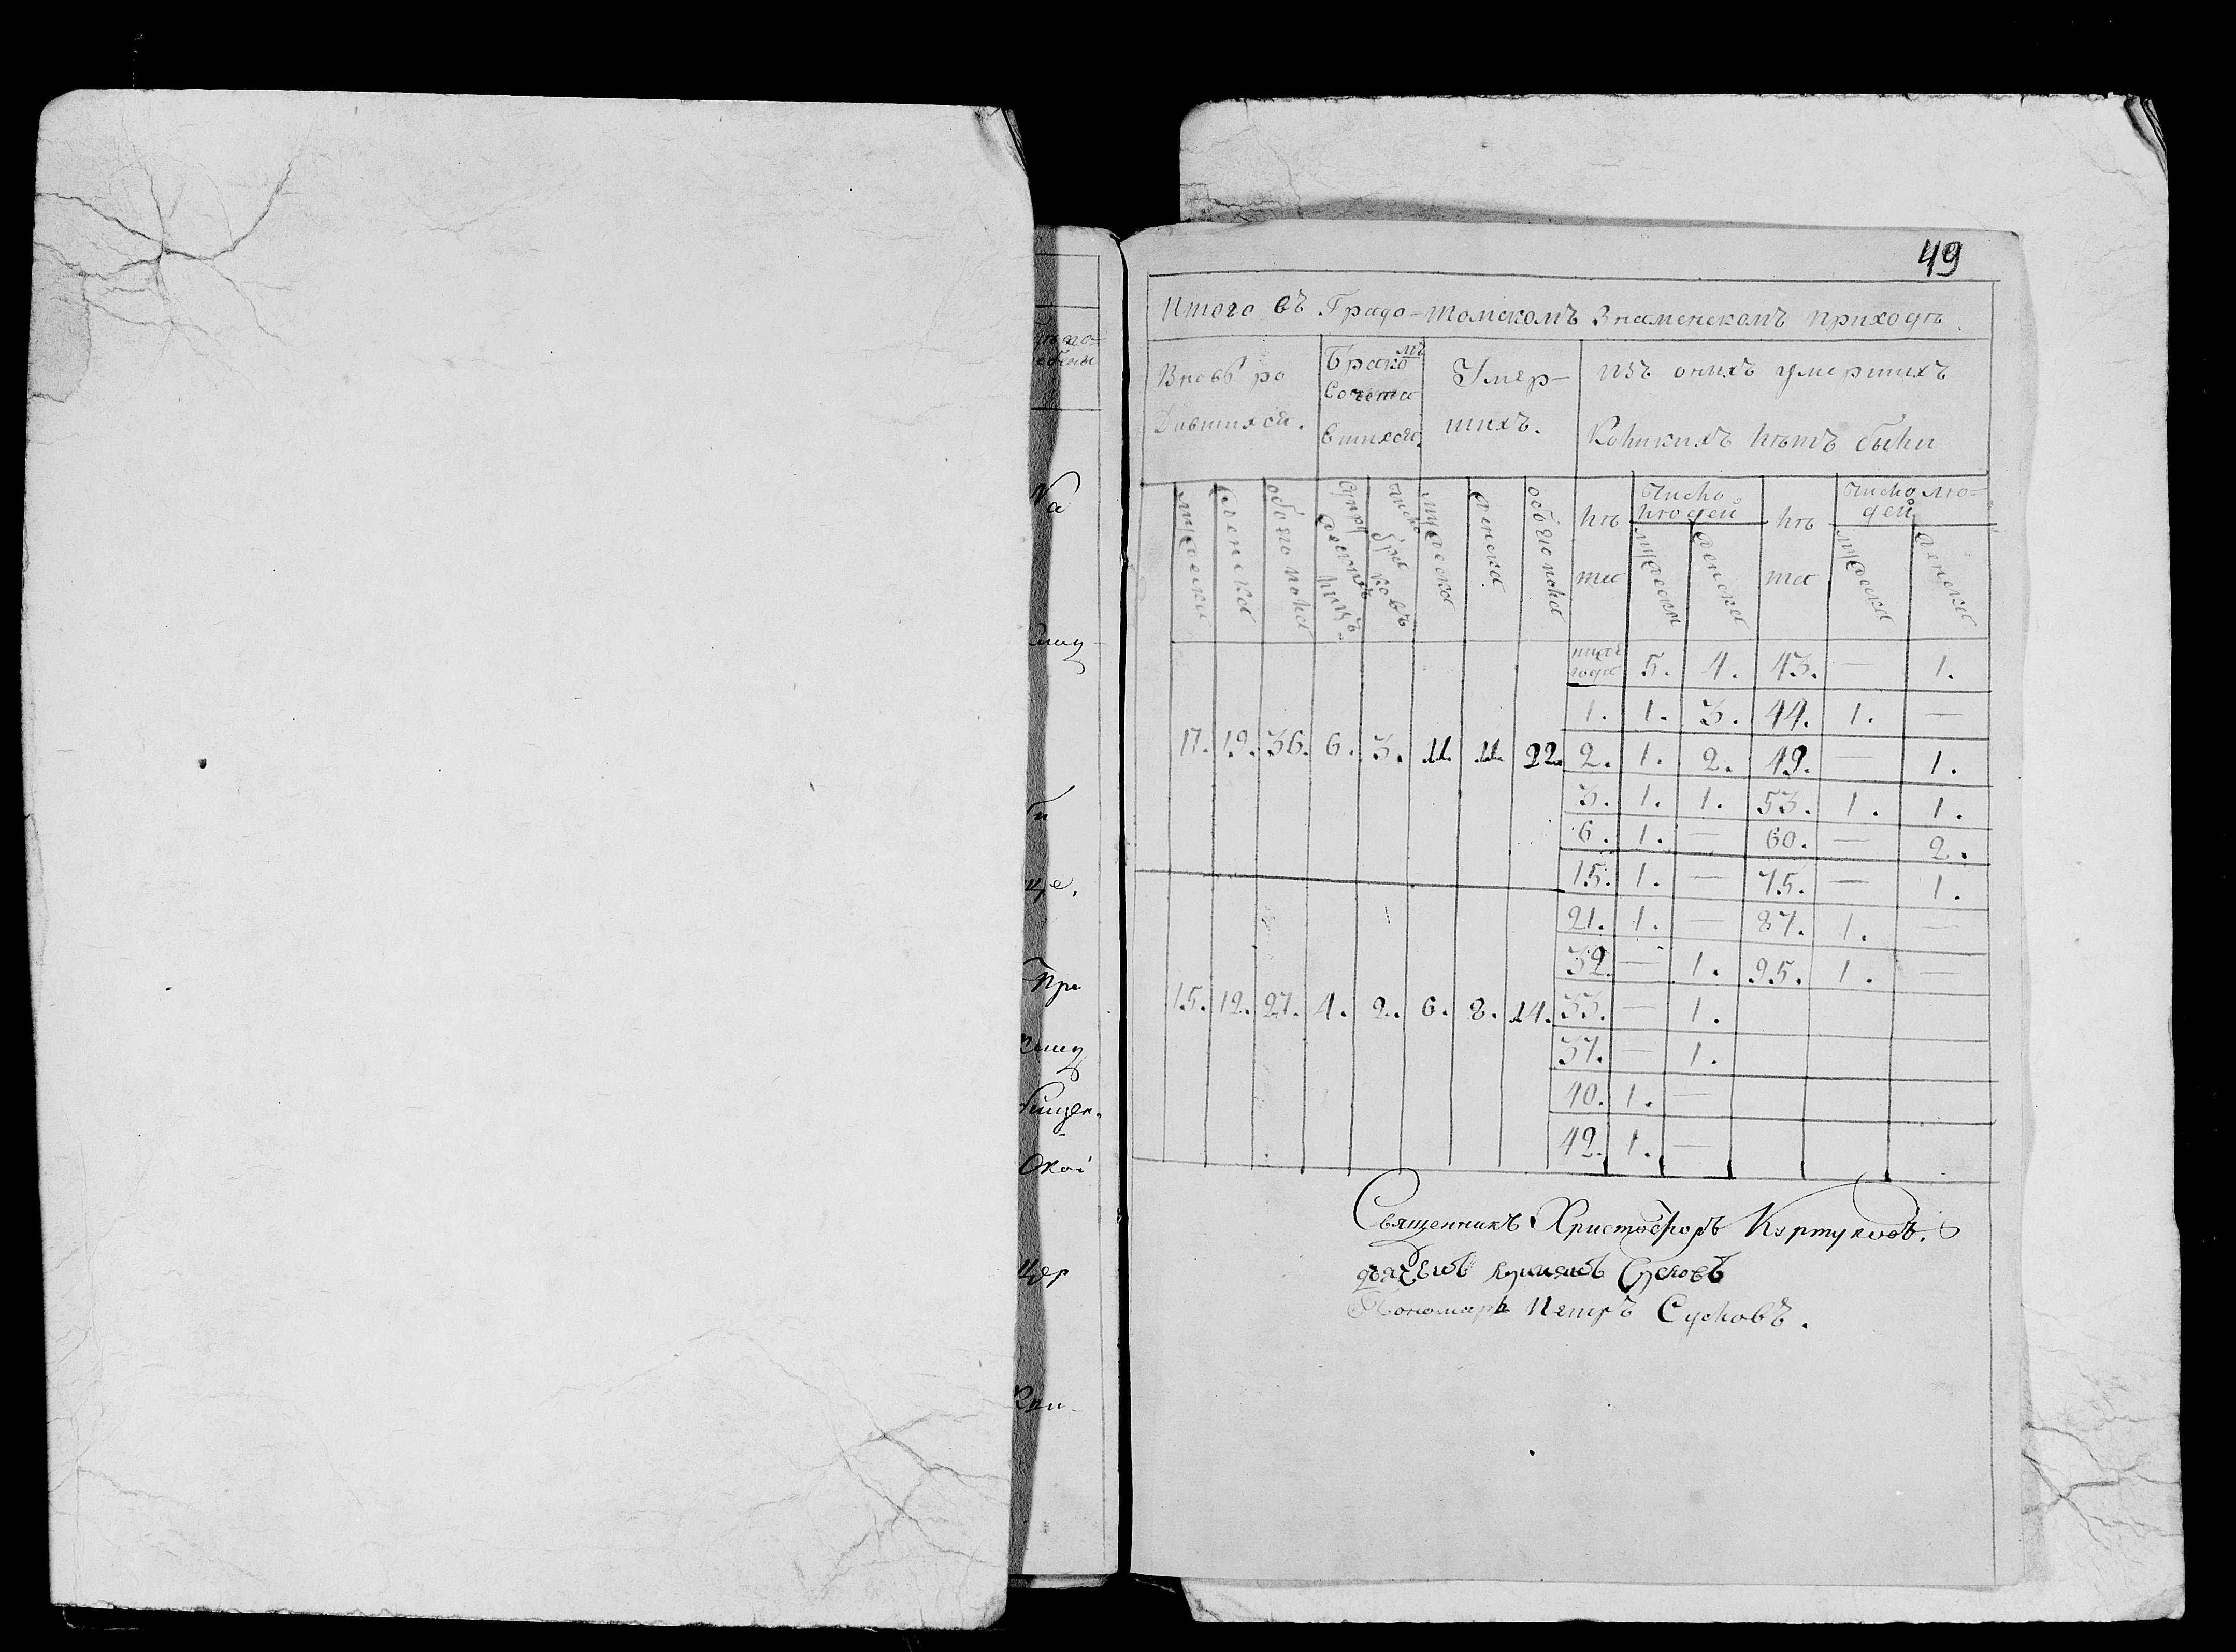 49
Итого въ Градо-Томскомъ Знаменскомъ приходѣ.
Вновь ро
дившихся.
Бракомъ
Сочета
вшихся.
Умер-
шихъ.
изъ оныхъ умершихъ
Коликихъ лѣтъ были
мужеска
женска
обоего пола
супружескихъ лицъ
число браковъ
мужеска
женска
обоего пола
лѣ
та
число
людей
мужеска
женска
лѣ
та
число лю-
дей
мужеска
женска
ниже
года 5. 4. 43. — 1.
1. 1. 3. 44. 1. —
17. 19. 36. 6. 3. 11. 11. 22. 2. 1. 2. 49. — 1.
3. 1. 1. 53. 1. 1.
6. 1. — 60. — 2.
15. 1. — 75. — 1.
21. 1. — 87. 1. —
32. — 1. 95. 1. —
15. 12. 27. 4. 2. 6. 8. 14. 33. — 1.
37. — 1.
40. 1. —
42. 1. —
Священникъ Христофоръ Кортуковъ.
дьячекъ Сусловъ
Пономарь Петръ Сусловъ.